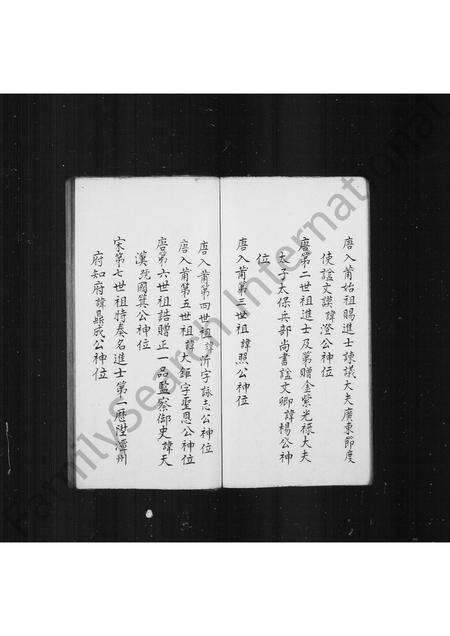 唐入莆始祖賜進士諫議大夫廣東節度
使諡文謨諱澄公神位
唐第二世祖進士及第贈金紫光祿大夫
太子太保兵部尚書諡文卿諱楊公神
位
唐入莆第三世祖諱照公神位
唐入莆第四世祖諱沂字詠志公神位
唐入莆第五世祖諱大鉅字聖恩公神位
唐第六世祖誥贈正一品監察御史諱天
漢號國巽公神位
宋第七世祖特奏名進士第二歷陞漳州
府知府諱縣成公神位
FamilySearch International